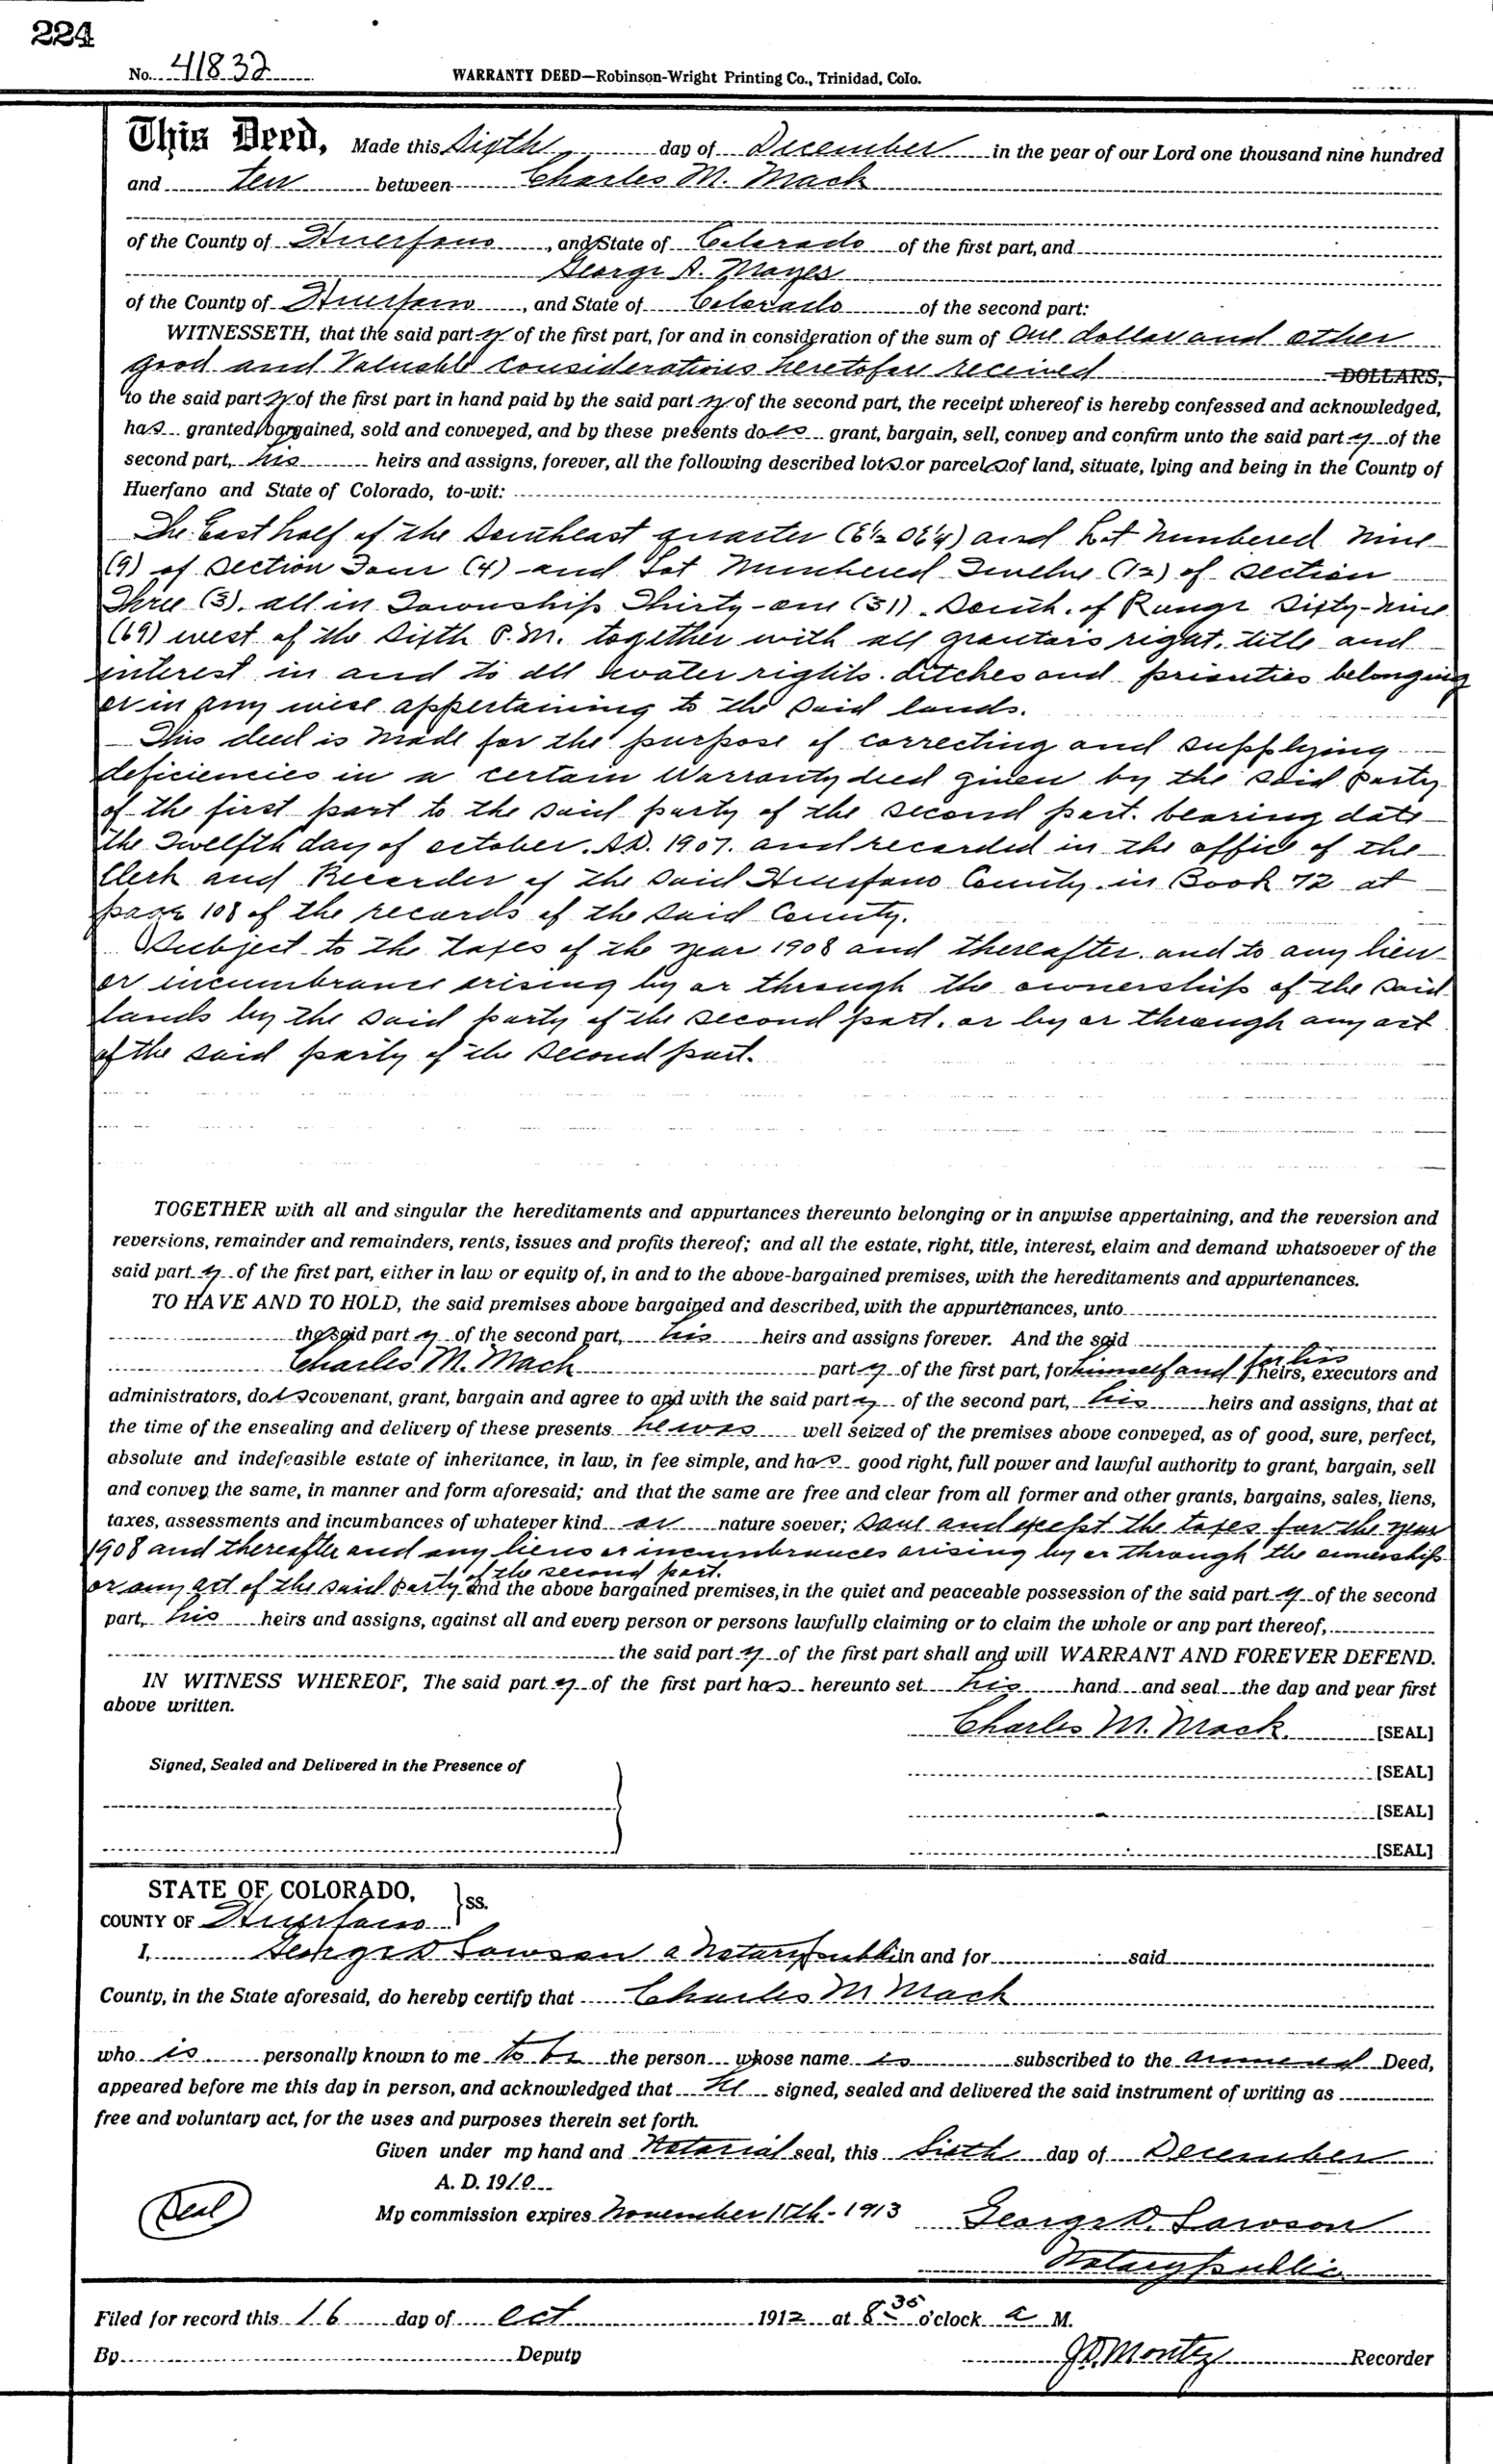 224
No. 41832 WARRANTY DEED—Robinson-Wright Printing Co., Trinidad, Colo.
This Deed, Made this Sixth day of December in the year of our Lord one thousand nine hundred
and Ten between Charles M. Mack
of the County of Huerfano, and State of Colorado of the first part, and
George A. Mayes
of the County of Huerfano, and State of Colorado of the second part:
WITNESSETH, that the said party of the first part, for and in consideration of the sum of One dollar and other
good and Valuable considerations heretofore received DOLLARS,
to the said party of the first part in hand paid by the said party of the second part, the receipt whereof is hereby confessed and acknowledged,
has granted, bargained, sold and conveyed, and by these presents does grant, bargain, sell, convey and confirm unto the said party of the
second part, his heirs and assigns, forever, all the following described lots or parcels of land, situate, lying and being in the County of
Huerfano and State of Colorado, to-wit:
The East half of the Southeast quarter (E½ SE¼) and Lot Numbered Nine
(9) of Section Four (4) and Lot Numbered Twelve (12) of Section
Three (3), all in Township Thirty-one (31), South, of Range Sixty-Nine
(69) west of the Sixth P.M. together with all grantors right, title and
interest in and to all water rights, ditches and priorities belonging
or in any wise appertaining to the said lands.
This deed is made for the purpose of correcting and supplying
deficiencies in a certain Warranty deed given by the said party
of the first part to the said party of the second part, bearing date
the Twelfth day of October, A.D. 1907, and recorded in the office of the
Clerk and Recorder of the said Huerfano County, in Book 72 at
page 108 of the records of the said County.
Subject to the taxes of the year 1908 and thereafter, and to any lien
or incumbrance arising by or through the ownership of the said
lands by the said party of the second part, or by or through any act
of the said party of the second part.
TOGETHER with all and singular the hereditaments and appurtances thereunto belonging or in anywise appertaining, and the reversion and
reversions, remainder and remainders, rents, issues and profits thereof; and all the estate, right, title, interest, elaim and demand whatsoever of the
said party of the first part, either in law or equity of, in and to the above-bargained premises, with the hereditaments and appurtenances.
TO HAVE AND TO HOLD, the said premises above bargained and described, with the appurtenances, unto
the said party of the second part, his heirs and assigns forever. And the said
Charles M. Mack party of the first part, for himself and for his heirs, executors and
administrators, does covenant, grant, bargain and agree to and with the said party of the second part, his heirs and assigns, that at
the time of the ensealing and delivery of these presents he was well seized of the premises above conveyed, as of good, sure, perfect,
absolute and indefeasible estate of inheritance, in law, in fee simple, and has good right, full power and lawful authority to grant, bargain, sell
and convey the same, in manner and form aforesaid; and that the same are free and clear from all former and other grants, bargains, sales, liens,
taxes, assessments and incumbances of whatever kind or nature soever; save and except the taxes for the year
1908 and thereafter and any liens or incumbrances arising by or through the ownership
of the second part.
or any act of the said party and the above bargained premises, in the quiet and peaceable possession of the said party of the second
part, his heirs and assigns, against all and every person or persons lawfully claiming or to claim the whole or any part thereof,
the said party of the first part shall and will WARRANT AND FOREVER DEFEND.
IN WITNESS WHEREOF, The said party of the first part has hereunto set his hand and seal the day and year first
above written.
Charles M. Mack. [SEAL]
Signed, Sealed and Delivered in the Presence of [SEAL]
[SEAL]
[SEAL]
STATE OF COLORADO,
COUNTY OF Huerfano } ss.
I, George D Lawson a Notary Public in and for said
County, in the State aforesaid, do hereby certify that Charles M Mack
who is personally known to me to be the person whose name is subscribed to the annexed Deed,
appeared before me this day in person, and acknowledged that He signed, sealed and delivered the said instrument of writing as
free and voluntary act, for the uses and purposes therein set forth.
Given under my hand and Notarial seal, this Sixth day of December
A. D. 1910
Seal My commission expires November 15th - 1913 George D. Lawson
Notary Public
Filed for record this 16 day of Oct 1912 at 8 30 o'clock a M.
By Deputy J.D. Montez Recorder